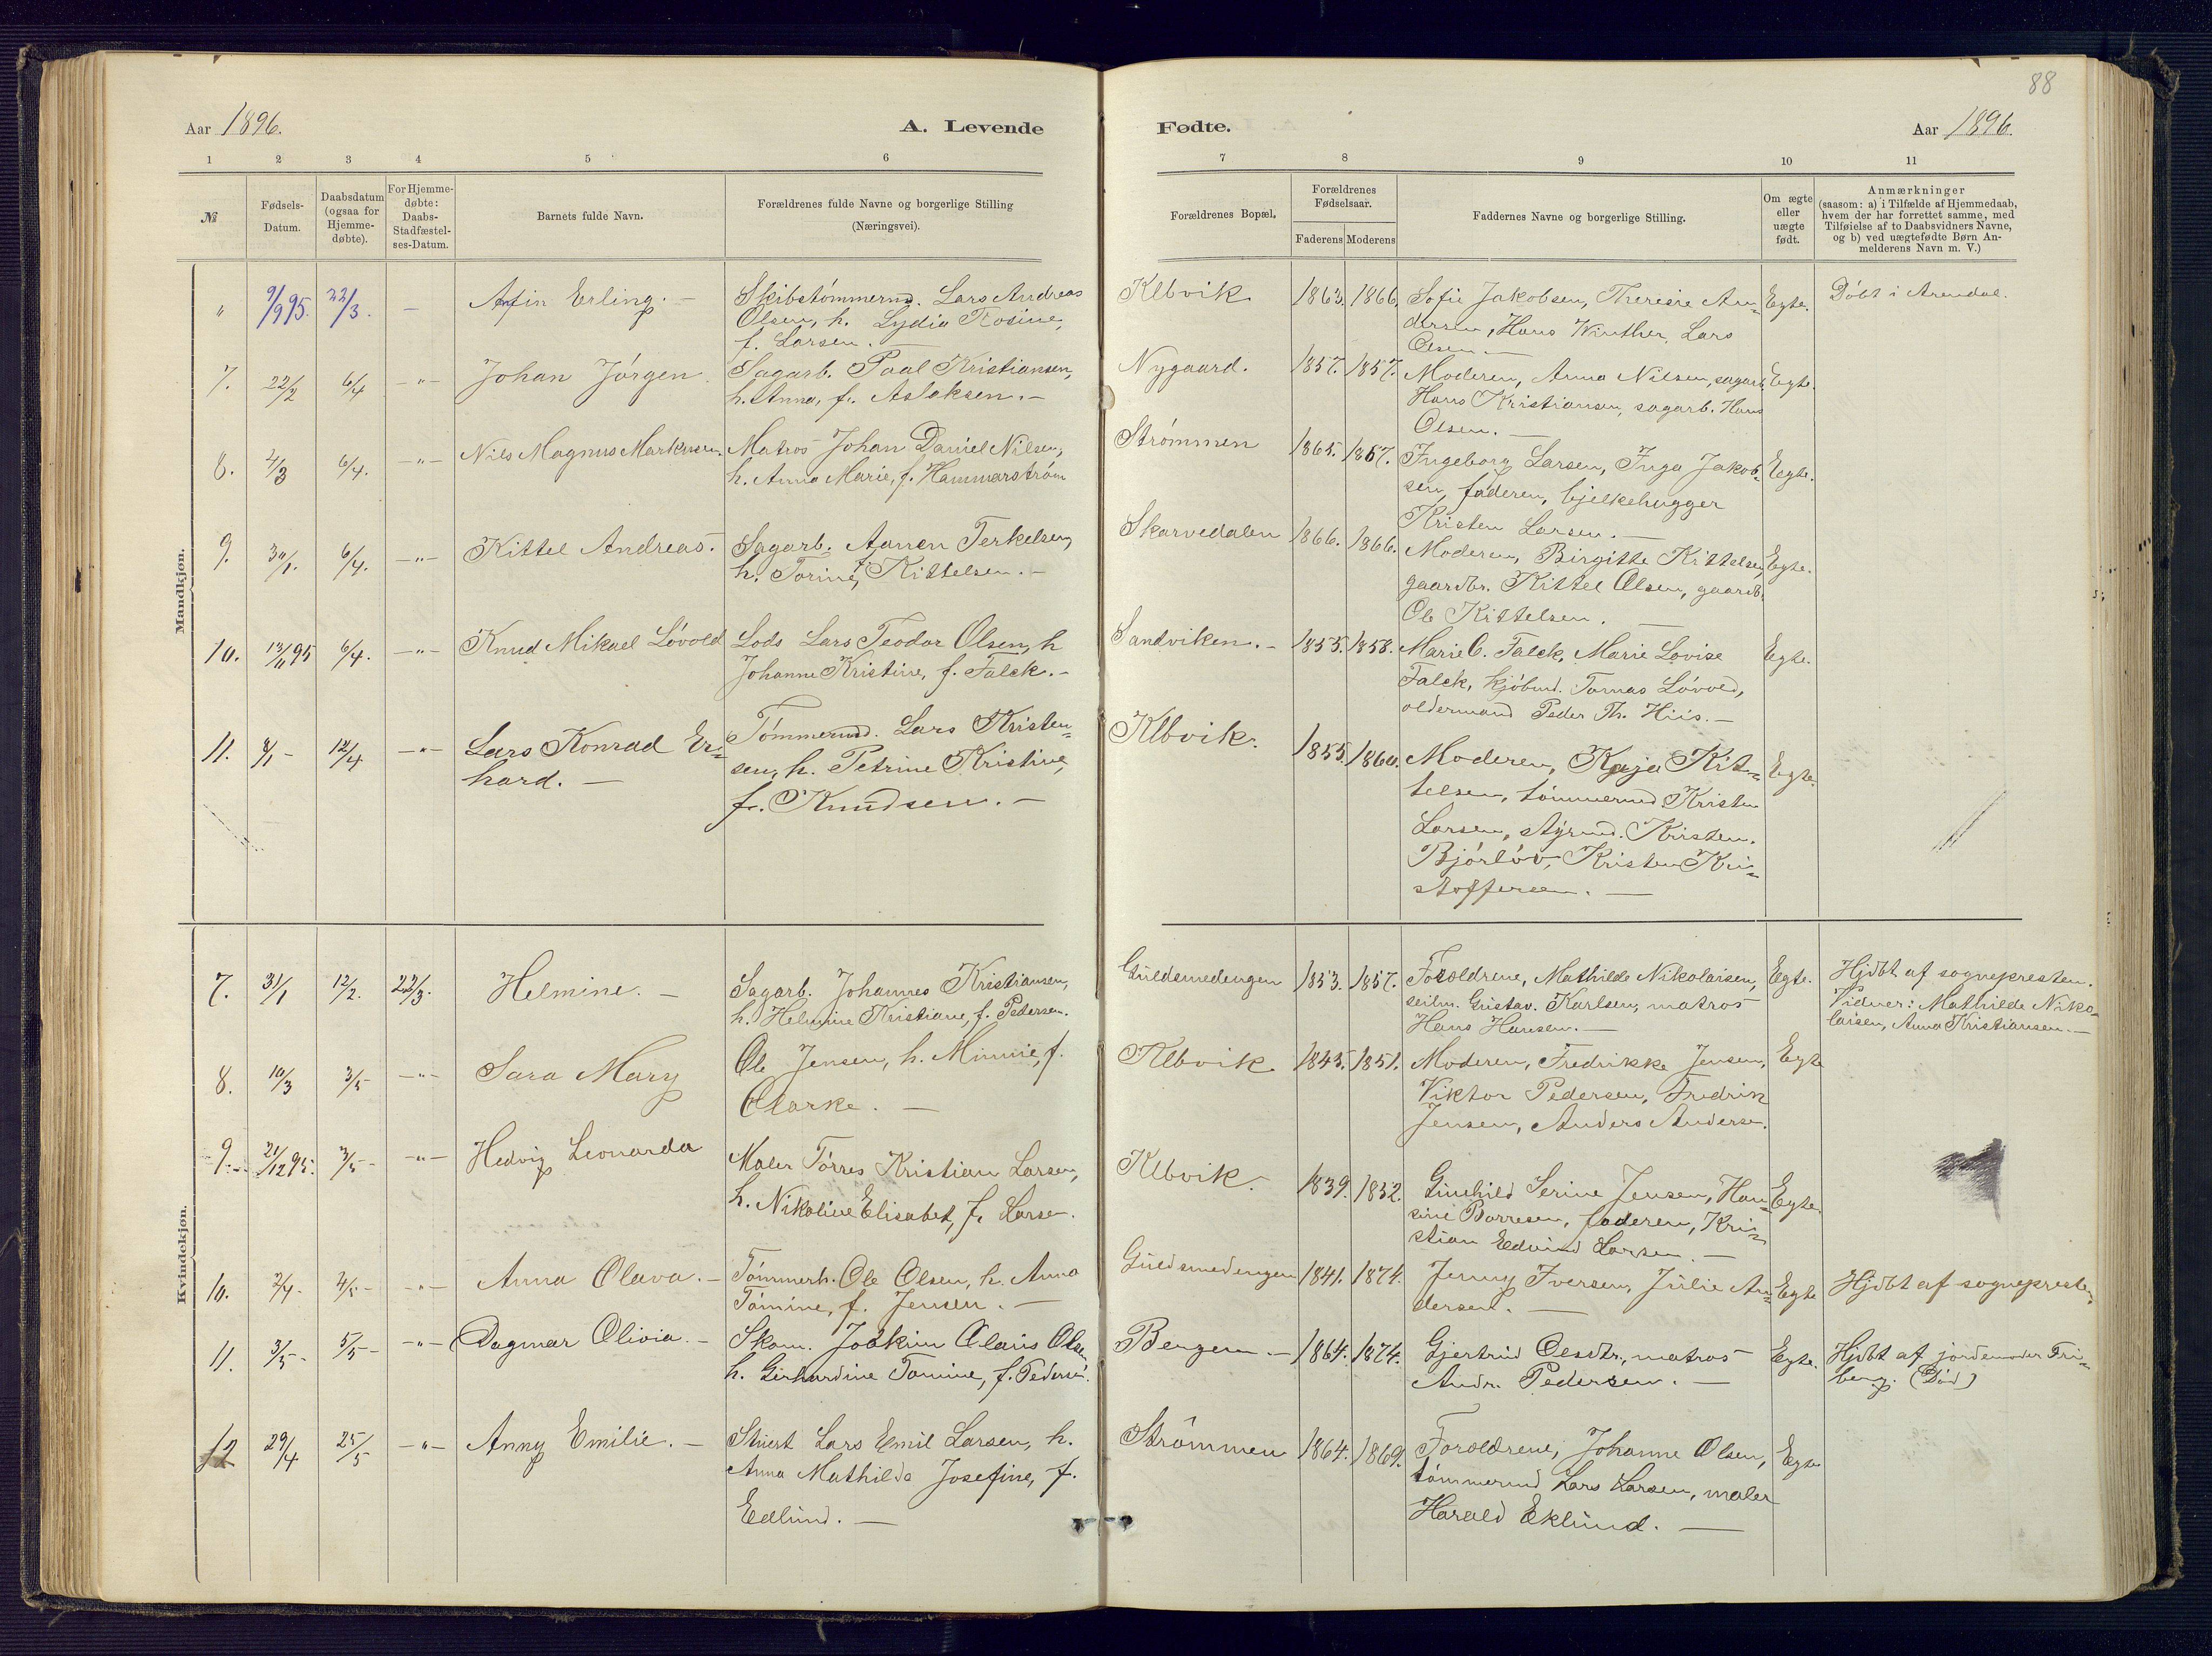 88
Aar 1896.
A. Levende
Fødte.
Aar 1896.
1 2 3 4 5 6
7 8 9 10 11
№
Fødsels-
Datum.
Daabsdatum
(ogsaa for
Hjemme-
døbte).
For Hjemme-
døbte:
Daabs-
Stadfæstel-
ses-Datum.
Barnets fulde Navn.
Forældrenes fulde Navne og borgerlige Stilling
(Næringsvei).
Forældrenes Bopæl.
Forældrenes
Fødselsaar.
Faderens Moderens
Faddernes Navne og borgerlige Stilling.
Om ægte
eller
uægte
født.
Anmærkninger
(saasom: a) i Tilfælde af Hjemmedaab,
hvem der har forrettet samme, med
Tilføielse af to Daabsvidners Navne,
og b) ved uægtefødte Børn An-
melderens Navn m. V.)
Mandkjøn.
" 9/9 95. 22/3. - Erling. -
Skibstømmermd. Lars Andreas
Olsen, h. Lydia Rosine,
f. Larsen. -
Klbvik 1863. 1866.
Sofie Jakobsen, Theresie An-
dersen, Hans Winther, Lars
Olsen -
Egte.
Døbt i Arendal.
7. 22/2 6/4 -"- Johan Jørgen.
Sagarb. Paal Kristiansen,
h. Anna, f. Aslaksen. -
Nygaard. 1857. 1857.
Moderen, Anna Nilsen, sagarb.
Hans Kristiansen, sagarb. Hans
Olsen. -
Egte.
8. 4/3 6/4. -"- Nils Magnus Markusen.
Matros Johan Daniel Nilsen,
h. Anna Marie, f. Hammarstrøm
Strømmen 1865. 1867.
Ingeborg Larsen, Inga Jakob-
sen, faderen, bjelkehugger
Kristen Larsen. -
Egte.
9. 30/1. 6/4. -"- Kittel Andreas.
Sagarb. Aanen Terkelsen,
h. Torine, f. Kittelsen. -
Skarvedalen 1866. 1866.
Moderen, Birgitte Kittelsen,
gaardbr. Kittel Olsen, gaardb.
Ole Kittelsen. -
Egte.
10. 13/11 95 6/4. -"- Knud Mikael Løvold
Lods Lars Teodor Olsen, h
Johanne Kristine, f. Falck. -
Sandviken. - 1855. 1858.
Marie C. Falck, Marie Lovise
Falck, kjøbmd. Tomas Løvold,
oldermand Peder Th. Hiis. -
Egte.
11. 8/1 - 12/4 -"- Lars Konrad Er-
hard. -
Tømmermd. Lars Kristen-
sen, h. Petrine Kristine,
f. Knudsen. -
Klbvik. 1855. 1860.
Moderen, Kaja Kit-
telsen, tømmermd. Kristen
Larsen, styrmd. Kristen.
Bjørløv, Kristen Kri-
stoffersen. -
Egte.
Kvindekjøn.
7. 31/1 12/2. 22/3. Helmine. -
Sagarb. Johannes Kristiansen,
h. Helmine Kristiane, f. Pedersen.
Guldsmedengen 1853. 1857.
Forældrene, Mathilde Nikolaisen,
seilm. Gustav. Karlsen, matros
Hans Hansen. -
Egte.
Hjdbt af sognepresten.
Vidner: Mathilde Niko-
laisen, Anna Kristiansen. -
8. 10/3 3/5 -"- Sara Mary
Ole Jensen, h. Minnie, f.
Clarke. -
Klbvik 1845. 1851.
Moderen, Fredrikke Jensen,
Viktor Pedersen, Fredrik
Jensen, Anders Anderse.
Egte
9. 21/12 95. 3/5 - -"- Hedvig Leonarda
Maler Tørres Kristian Larsen,
h. Nikoline Elisabet, f. Larse.
Klbvik. 1839. 1852.
Gunhild Serine Jensen, Han-
sine Borresen, faderen, Kri-
stian Edvind Larsen. -
Egte.
10. 2/4 - 4/5 - -"- Anna Olava. -
Tømmerh. Ole Olsen, h. Anna
Tomine, f. Jensen. -
Guldsmedengen 1841. 1874.
Jenny Iversen, Julie An-
dersen. -
Egte
Hjdbt af sognepresten.
11. 3/5 - 5/5 - -"- Dagmar Olivia. -
Skom. Joakim Olaus Olsen
h. Gerhardine Tomine, f. Pedersen.
Bergem. - 1864. 1874.
Gjertrud Olesdtr., matros
Andr. Pedersen. -
Egte.
Hjdbt af jordemoder Fri-
berg. (Død)
12 29/4 25/5 -"- Anny Emilie. -
Stuert Lars Emil Larsen, h.
Anna Mathilde Josefine, f.
Edlund. -
Strømmen 1864. 1869.
Forældrene, Johanne Olsen,
tømmermd Lars Larsen, maler
Harald Eklund. -
Egte